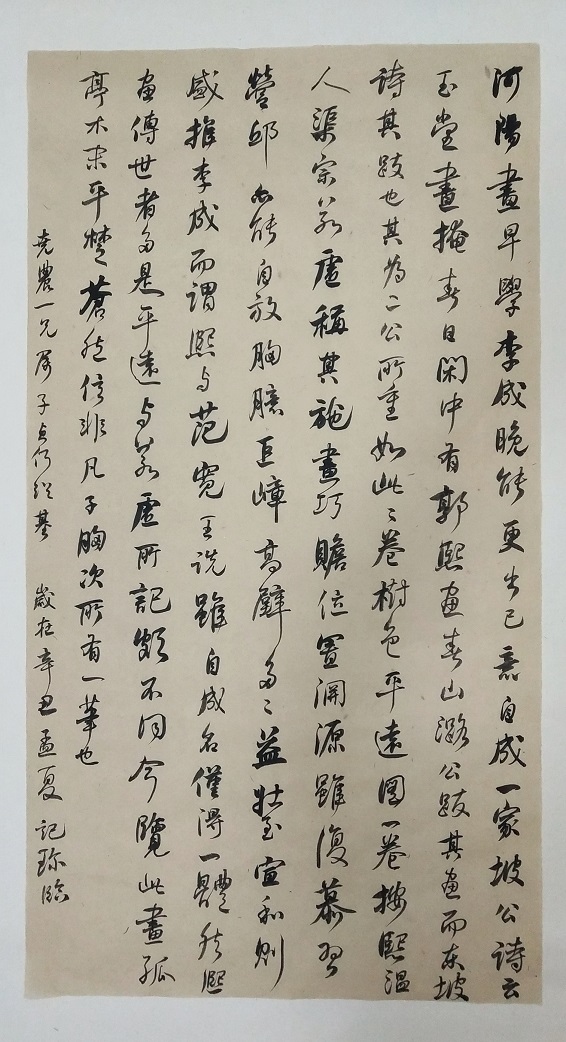 河陽畫早學李成晚能更出己意自成一家坡公詩云
玉堂晝掩春日閑中有郭熙畫春山潞公跋其畫而東坡
詩其跋也其為二公所重如此此卷樹色平遠圖一卷按熙溫
人渠宗若虛稱其施畫巧贍位置淵源雖復慕習
營邱亦能自放胸臆巨嶂高壁多多益壯至宣和則
盛推李成而謂熙與范寬王詵雖自成名僅得一體然熙
畫傳世者多是平遠與若虛所記頗不同今覽此畫孤
亭木末平楚蒼然信非凡子胸次所有一筆也
堯農一兄屬子貞仍紹基 歲在辛丑孟夏 記珎臨